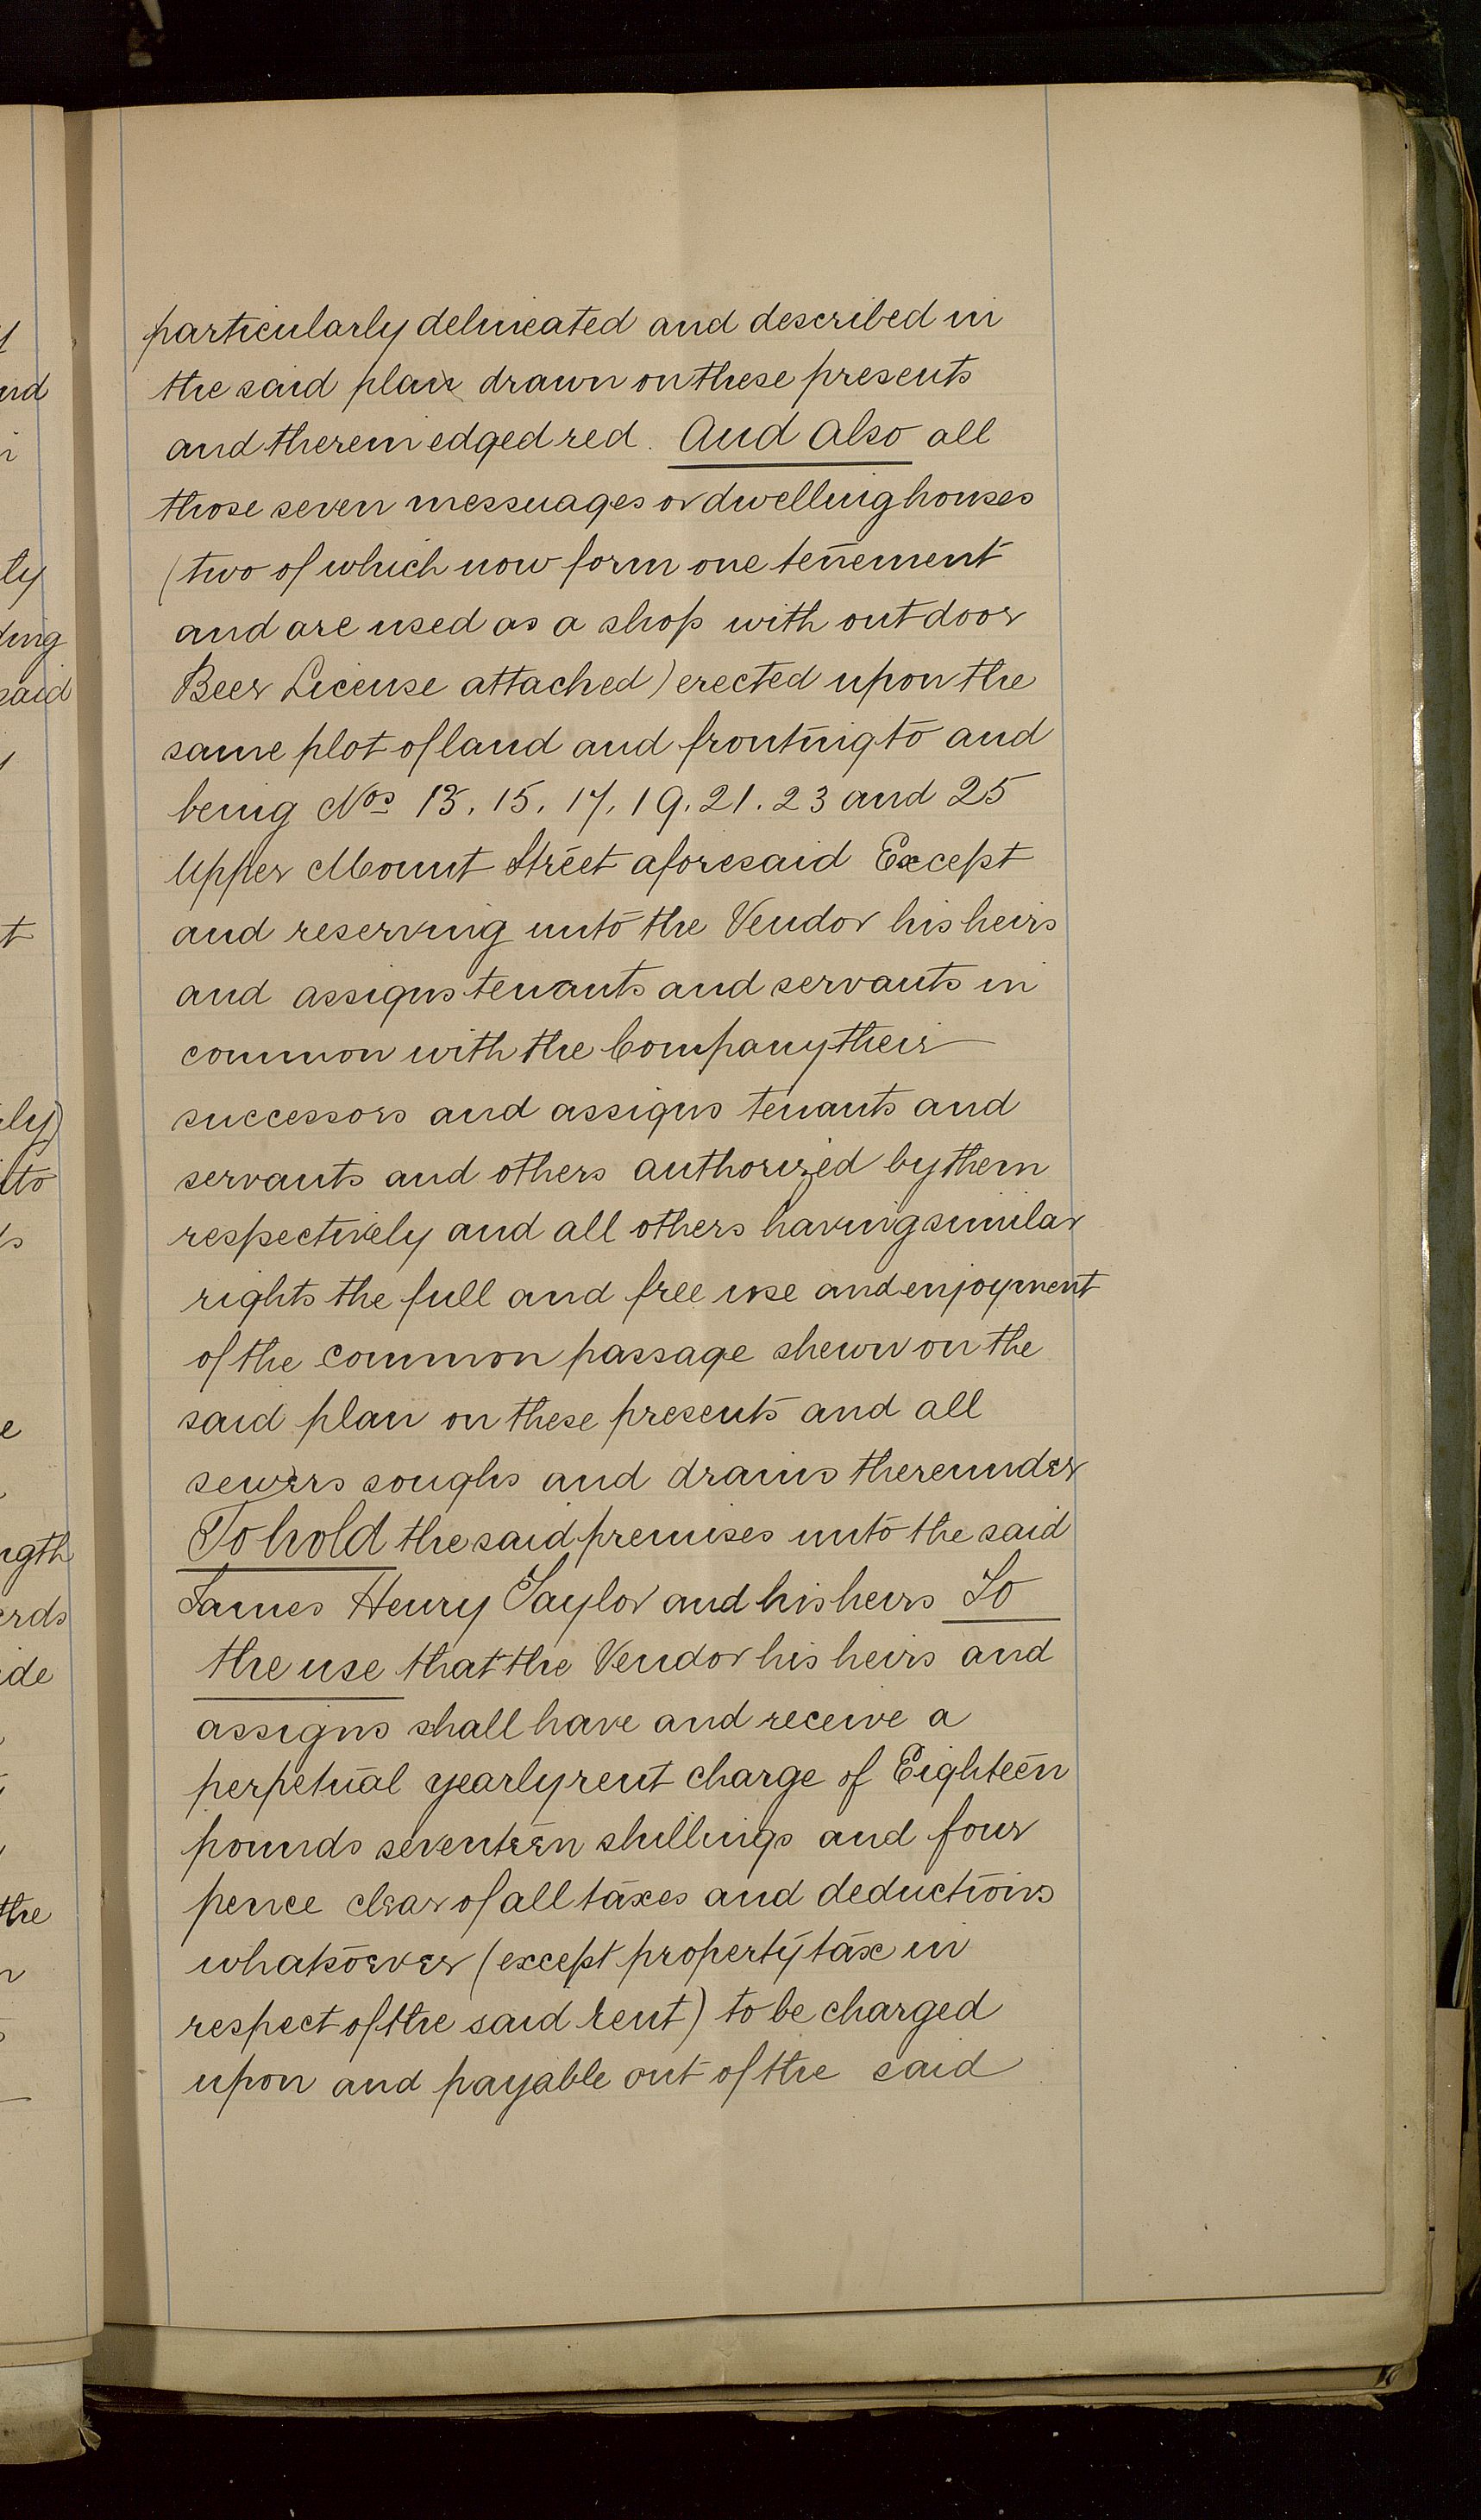 particularly delineated and described in
the said plan drawn on these presents
and therein edged red. And also all
those seven messuages or dwellinghouses
(two of which now form one tenement
and are used as a shop with outdoor
Beer License attached) erected upon the
same plot of land and fronting to and
being Nos 13, 15, 17, 19. 21. 23 and 25
Upper Mount Street aforesaid Except
and reserving unto the Vendor his heirs
and assigns tenants and servants in
common with the Company their
successors and assigns tenants and
servants and others authorized by them
respectively and all others having similar
rights the full and free use and enjoyment
of the common passage shewn on the
said plan on these presents and all
sewers soughs and drains thereunder
To hold the said premises unto the said
James Henry Taylor and his heirs To
the use that the Vendor his heirs and
assigns shall have and receive a
perpetual yearly rent charge of Eighteen
pounds seventeen shillings and four
pence clear of all taxes and deductions
whatsoever (except property tax in
respect of the said rent) to be charged
upon and payable out of the said